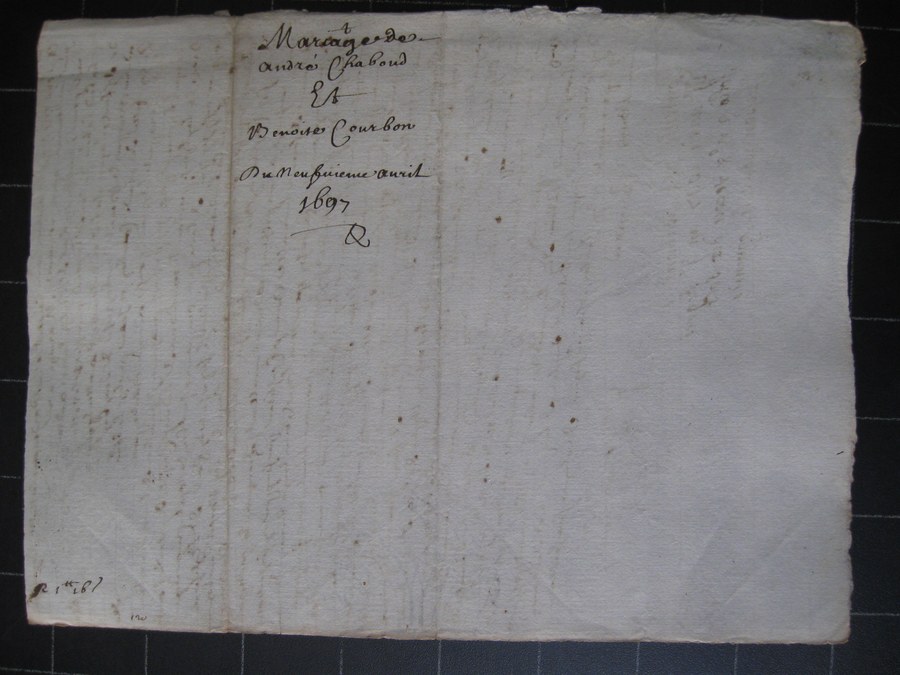 Mariage de
andré Chaboud
Et
Benoite Courbon
Du Neufvieme avril
1697
R 1tt 16s